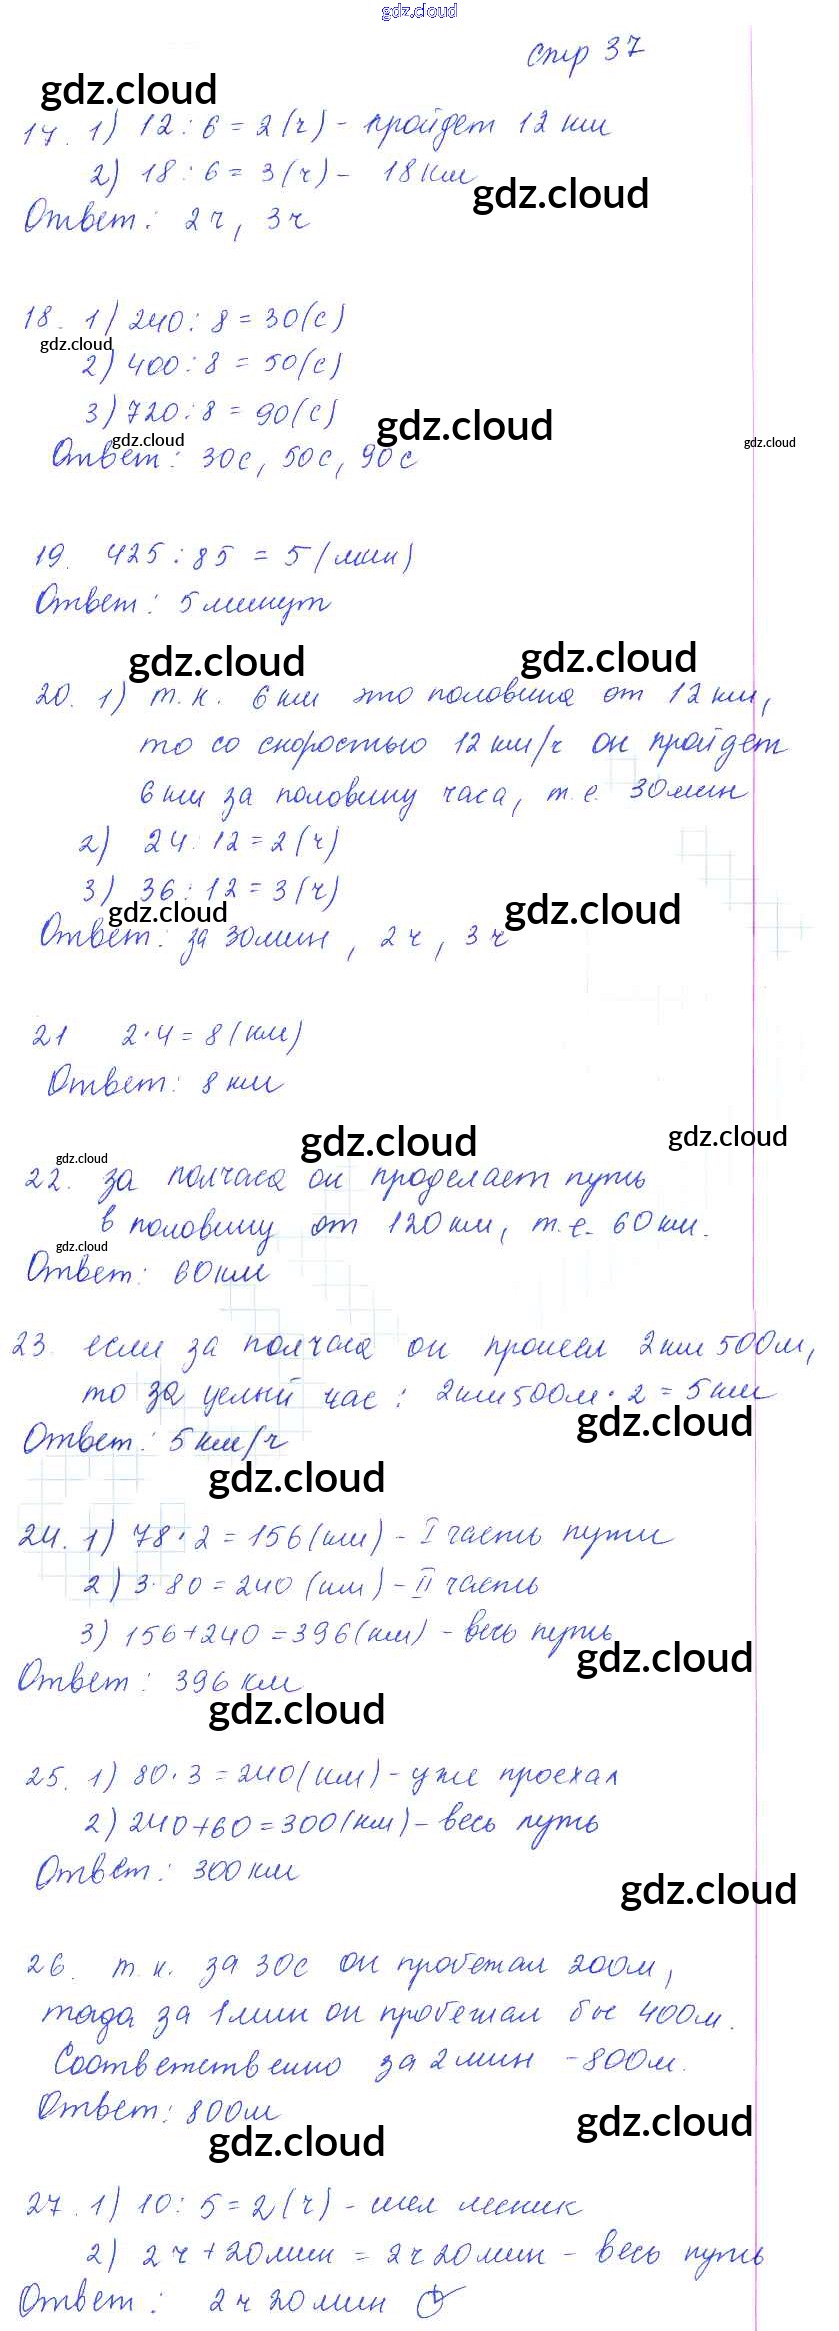 gdz.cloud
стр 37
gdz.cloud
17. 1) 12 : 6 = 2 (ч) - пройдет 12 км
2) 18 : 6 = 3 (ч) - 18 км
gdz.cloud
Ответ: 2 ч, 3 ч
18. 1) 240 : 8 = 30 (с)
gdz.cloud
2) 400 : 8 = 50 (с)
3) 720 : 8 = 90 (с)
gdz.cloud
gdz.cloud
gdz.cloud
Ответ: 30 с, 50 с, 90 с
19. 425 : 85 = 5 (мин)
Ответ: 5 минут
gdz.cloud
gdz.cloud
20. 1) т.к. 6 км это половина от 12 км,
то со скоростью 12 км/ч он пройдет
6 км за половину часа, т.е. 30 мин
2) 24 : 12 = 2 (ч)
3) 36 : 12 = 3 (ч)
gdz.cloud
gdz.cloud
Ответ: за 30 мин, 2 ч, 3 ч
21 2 · 4 = 8 (км)
Ответ: 8 км
gdz.cloud
gdz.cloud
gdz.cloud
22. за полчаса он проделает путь
в половину от 120 км, т.е. 60 км.
gdz.cloud
Ответ: 60 км
23. если за полчаса он пронесл 2 км 500 м,
то за целый час: 2 км 500 м · 2 = 5 км
gdz.cloud
Ответ: 5 км/ч
gdz.cloud
24. 1) 78 · 2 = 156 (км) - I часть пути
2) 3 · 80 = 240 (км) - II часть
3) 156 + 240 = 396 (км) - весь путь
gdz.cloud
Ответ: 396 км
gdz.cloud
25. 1) 80 · 3 = 240 (км) - уже проехал
2) 240 + 60 = 300 (км) - весь путь
Ответ: 300 км
gdz.cloud
26. т.к. за 30 с он пробежал 200 м,
тогда за 1 мин он пробежал бы 400 м.
Соответственно за 2 мин - 800 м.
Ответ: 800 м
gdz.cloud
gdz.cloud
27. 1) 10 : 5 = 2 (ч) - шел лесник
2) 2 ч + 20 мин = 2 ч 20 мин - весь путь
Ответ: 2 ч 20 мин